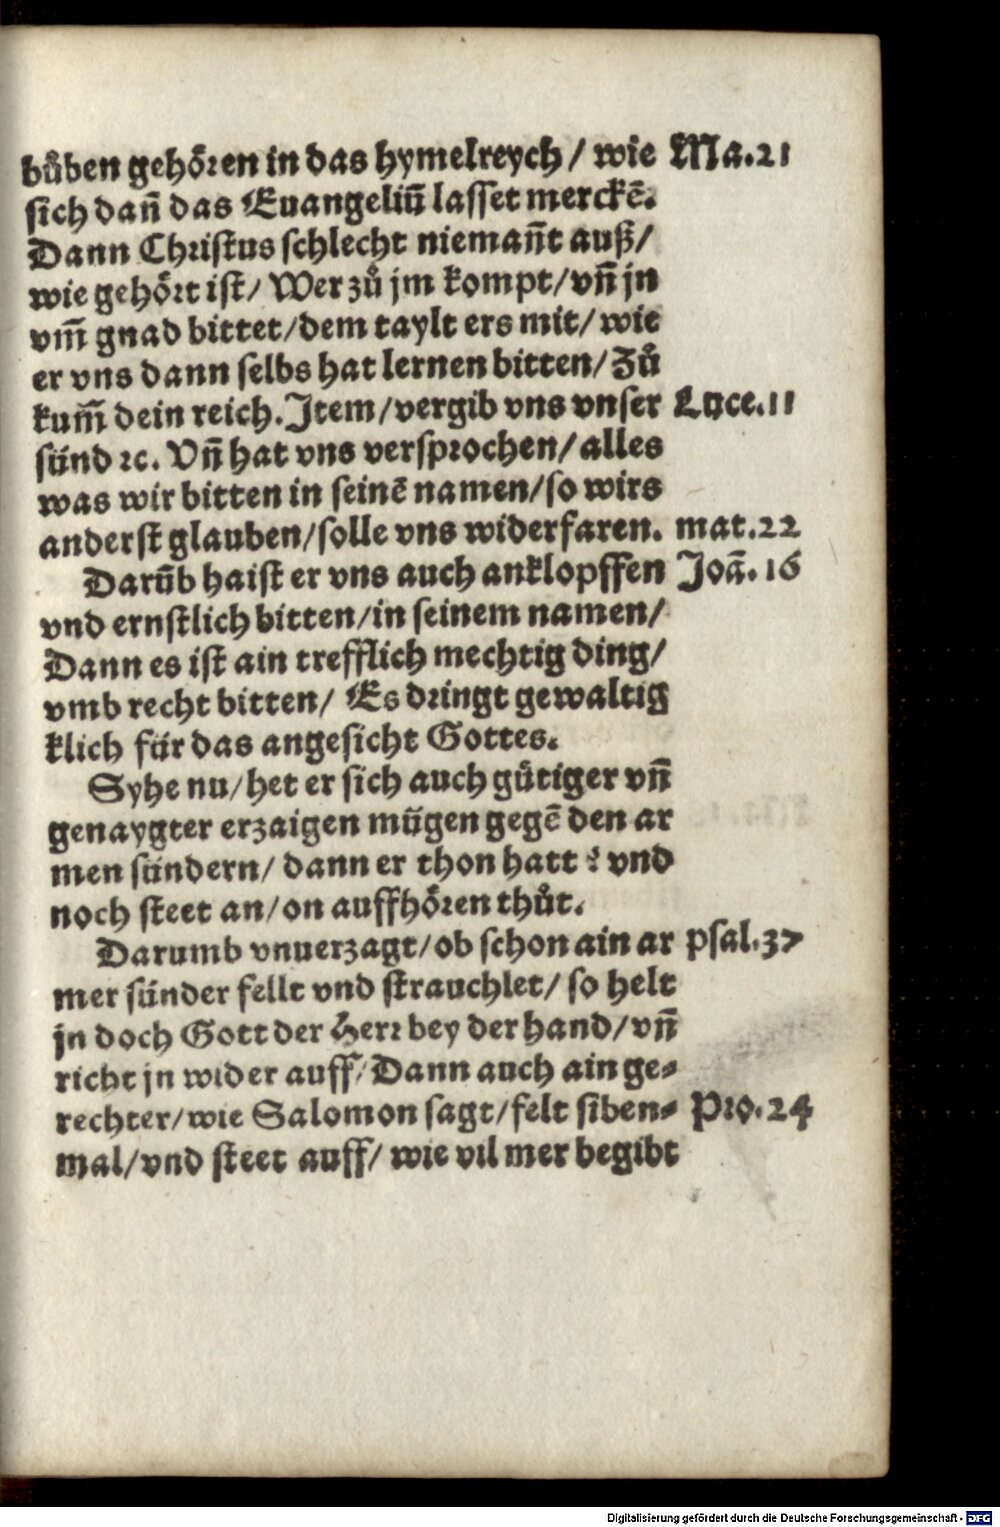 bůben gehoͤren in das hymelreych / wie Ma.21
sich dañ das Euangeliũ lasset merckē.
Dann Christus schlecht niemañt auß/
wie gehoͤrt ist/ Wer zů jm kompt/vñ jn
vm̃ gnad bittet/dem taylt ers mit/ wie
er vns dann selbs hat lernen bitten/Zů
kum̃ dein reich. Item/vergib vns vnser Luce.11
sünd ꝛc. Vñ hat vns versprochen/ alles
was wir bitten in seinē namen/so wirs
anderst glauben/solle vns widerfaren. mat.22
Darũb haist er vns auch anklopffen Joã.16
vnd ernstlich bitten/in seinem namen/
Dann es ist ain trefflich mechtig ding/
vmb recht bitten/ Es dringt gewaltig
klich für das angesicht Gottes.
Syhe nu/het er sich auch gütiger vñ
genaygter erzaigen mügen gegē den ar
men sündern/ dann er thon hatt ? vnd
noch steet an/on auffhoͤren thůt.
Darumb vnuerzagt/ob schon ain ar psal.37
mer sünder fellt vnd strauchlet/ so helt
jn doch Gott der Herr bey der hand/vñ
richt jn wider auff/Dann auch ain ge⸗
rechter/wie Salomon sagt/felt siben⸗ Pro.24
mal/vnd steet auff/ wie vil mer begibt
Digitalisierung gefördert durch die Deutsche Forschungsgemeinschaft - DFG